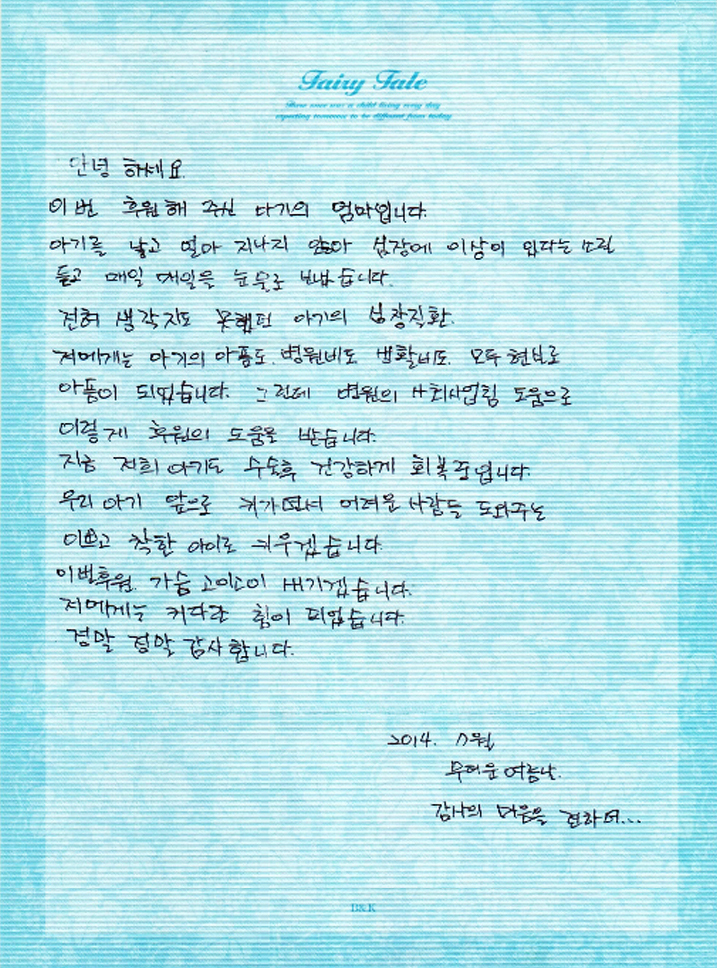 Fairy Tale
There once was a child living every day
expecting tomorrow to be different from today
안녕 하세요.
이번 후원해 주신 아기의 엄마입니다.
아기를 낳고 얼마 지나지 않아 심장에 이상이 있다는 소릴
듣고 매일 매일을 눈물로 보냈습니다.
전혀 생각지도 못했던 아기의 심장질환.
저에게는 아기의 아픔도. 병원비도 생활비도. 모두 현실로
아픔이 되었습니다. 그런데 병원의 사회사업팀 도움으로
이렇게 후원의 도움을 받습니다.
지금 저희 아기도 수술후 건강하게 회복중입니다.
우리 아기 앞으로 커가면서 어려운 사람들 도와주는
이쁘고 착한 아이로 키우겠습니다.
이번후원. 가슴 고이고이 새기겠습니다.
저에게는 커다란 힘이 되었습니다.
정말 정말 감사합니다.
2014. 7월
무더운 여름날.
감사의 마음을 전하며...
B&K